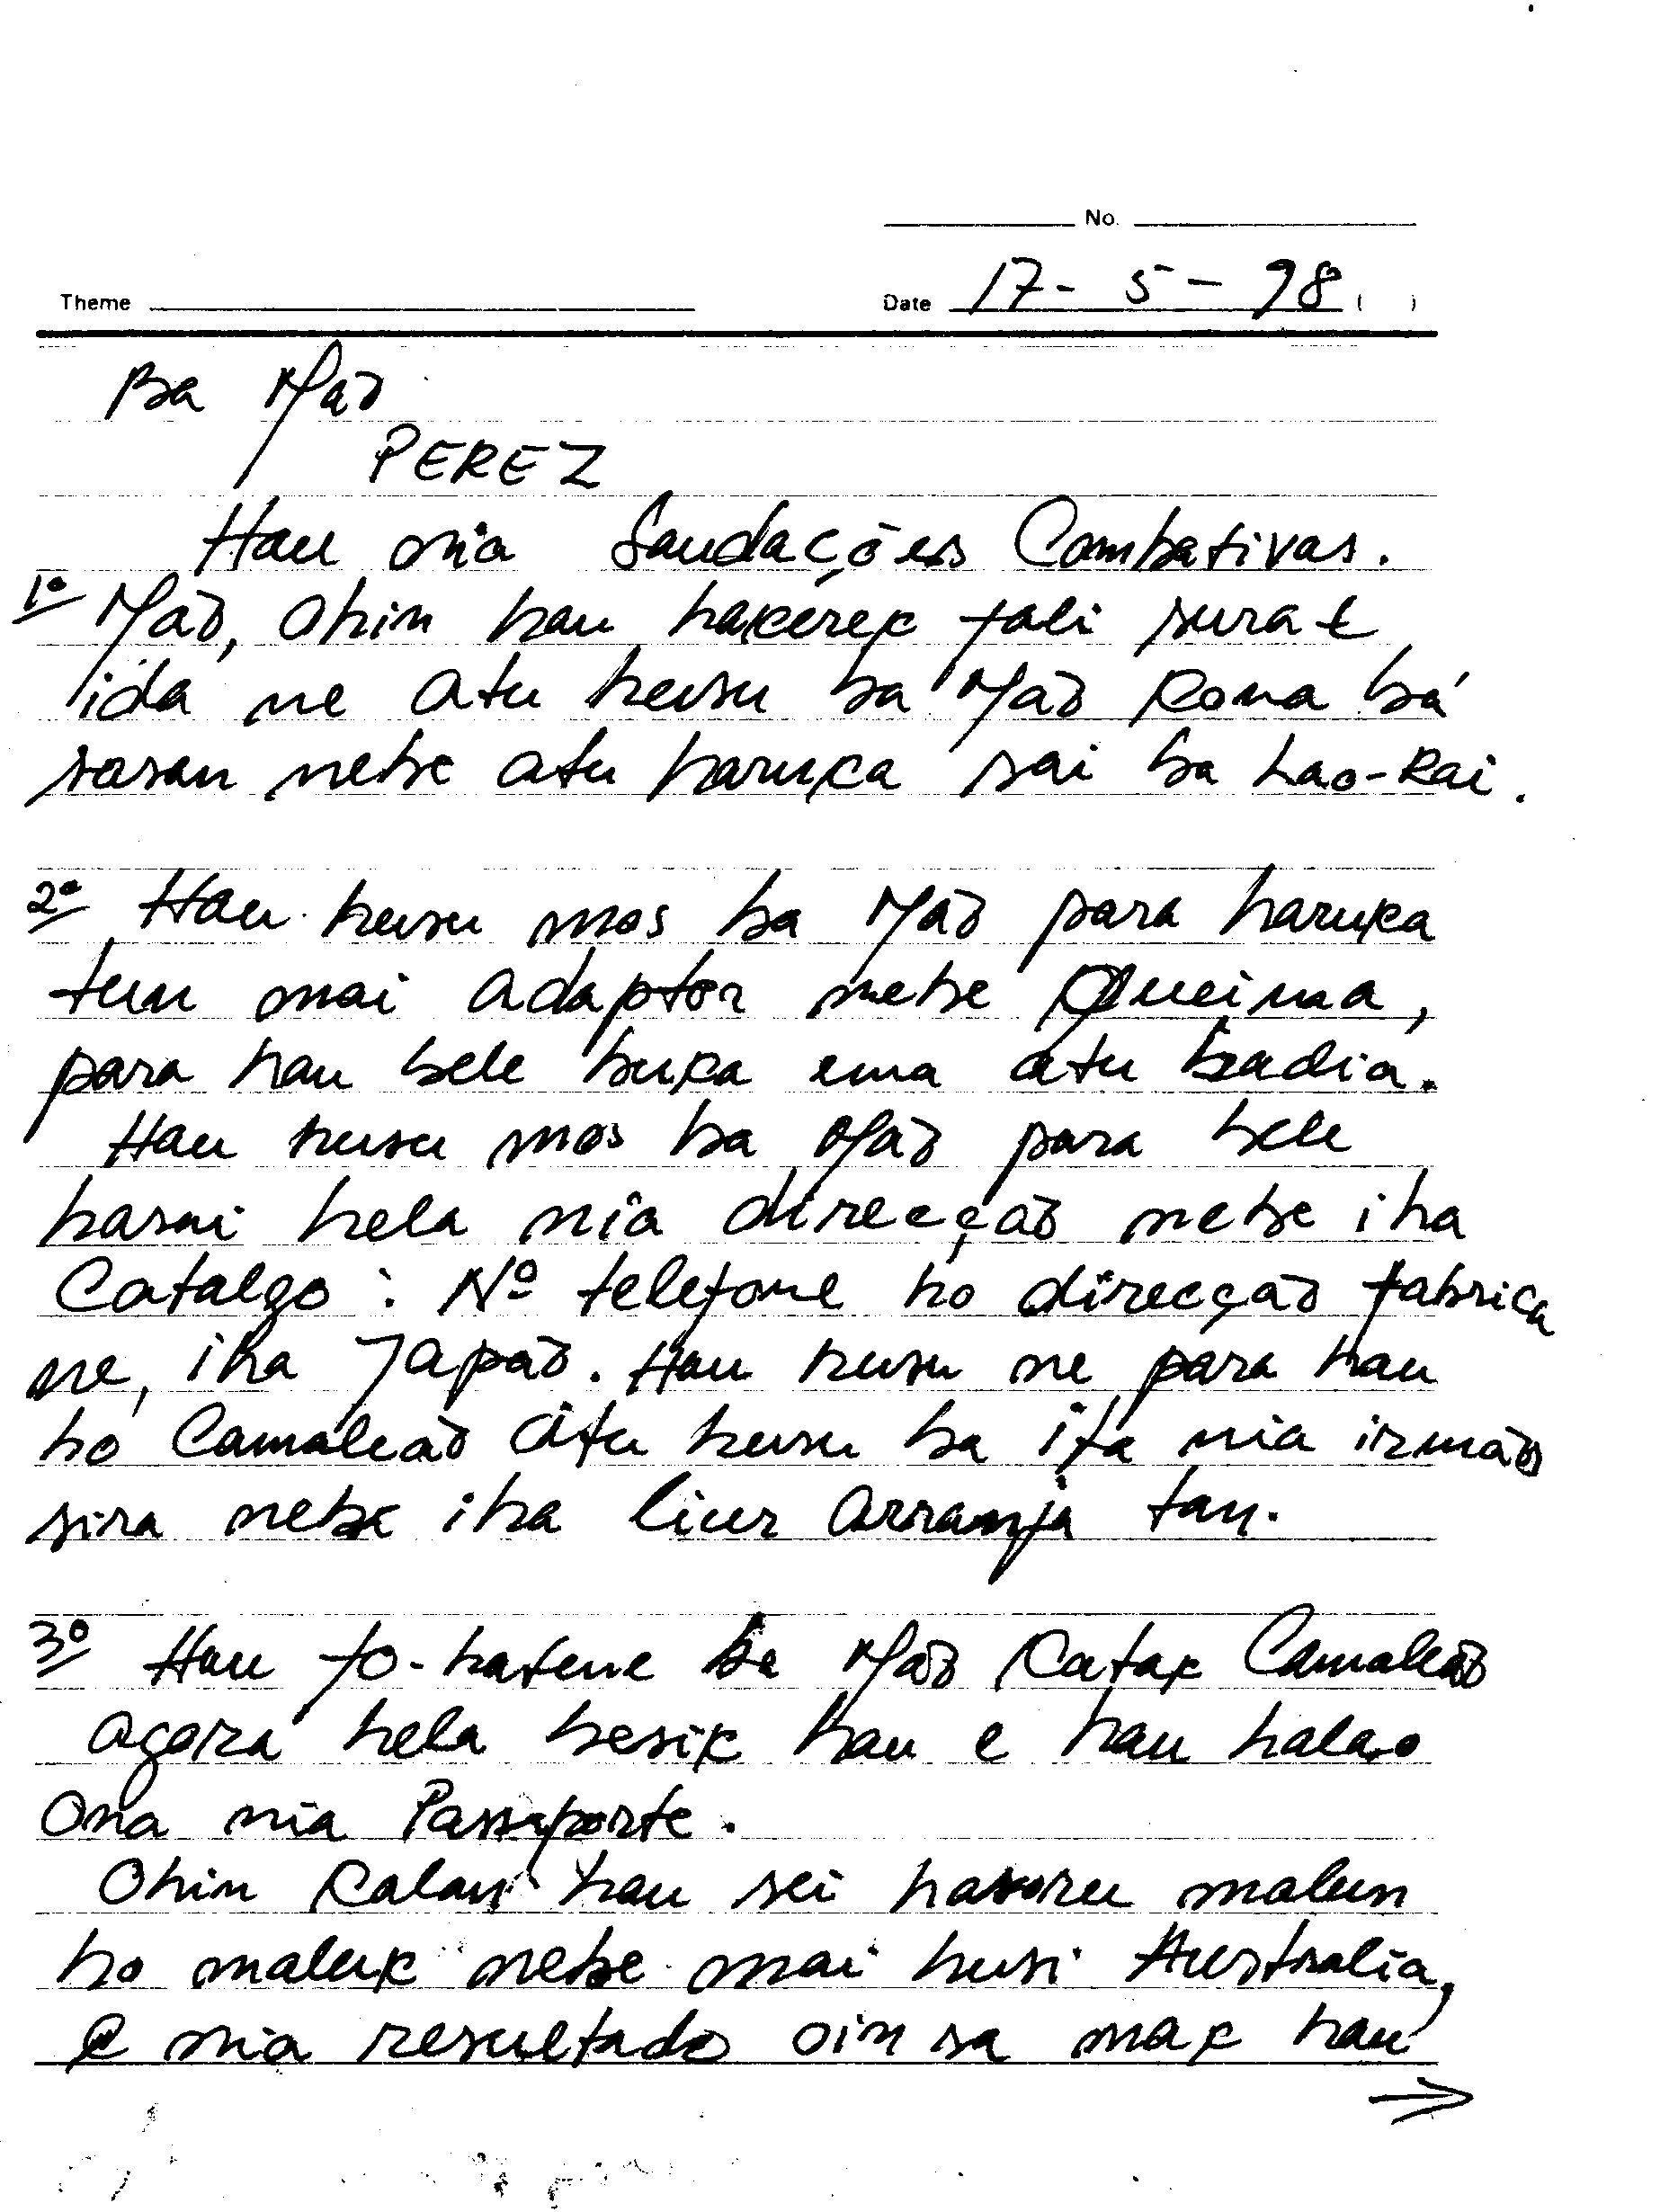 No.
Theme Date 17-5-98 ( )
Ba Maõ
PEREZ
Hau nia Saudações Combativas.
1º Maõ, Ohin hau hakerek tali surat
ida ne atu husu ba Maõ Kona bá
sasan nebe atu haruka sai ba hao-Rai.
2º Hau husu mos ba Maõ para haruka
tun mai adaptor nebe Queima,
para hau bele buka ema atu hadia.
Hau husu mos ba Maõ para bele
hasai hela nia direcçaõ nebe iha
Catalgo: Nº telefone ho direcçaõ fabrica
ne, iha Japaõ. Hau husu ne para hau
ho Camaleaõ Atu husu ba ita nia irmaõs
sira nebe iha liur Arranja tan.
3º Hau fo-hatene ba Maõ Katak Camaleaõ
agora hela besik hau e hau halao
Ona nia Passaporte.
Ohin Kalan hau sei hasoru malun
ho maluk nebe mai husi Australia,
e nia resultado oin sa mak hau
→